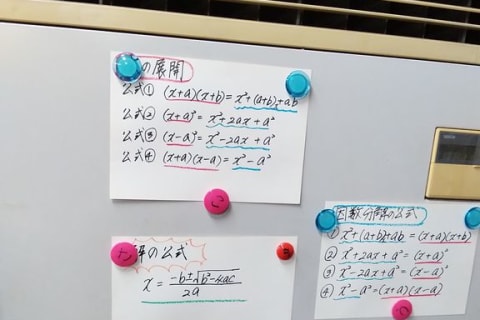 の展開
公式① (x+a)(x+b)=x²+(a+b)x+ab
公式② (x+a)²=x²+2ax+a²
公式③ (x-a)²=x²-2ax+a²
公式④ (x+a)(x-a)=x²-a²
解の公式
x=\frac{-b±\sqrt{b²-4ac}}{2a}
因数分解の公式
① x²+(a+b)x+ab=(x+a)(x+b)
② x²+2ax+a²=(x+a)²
③ x²-2ax+a²=(x-a)²
④ x²-a²=(x+a)(x-a)